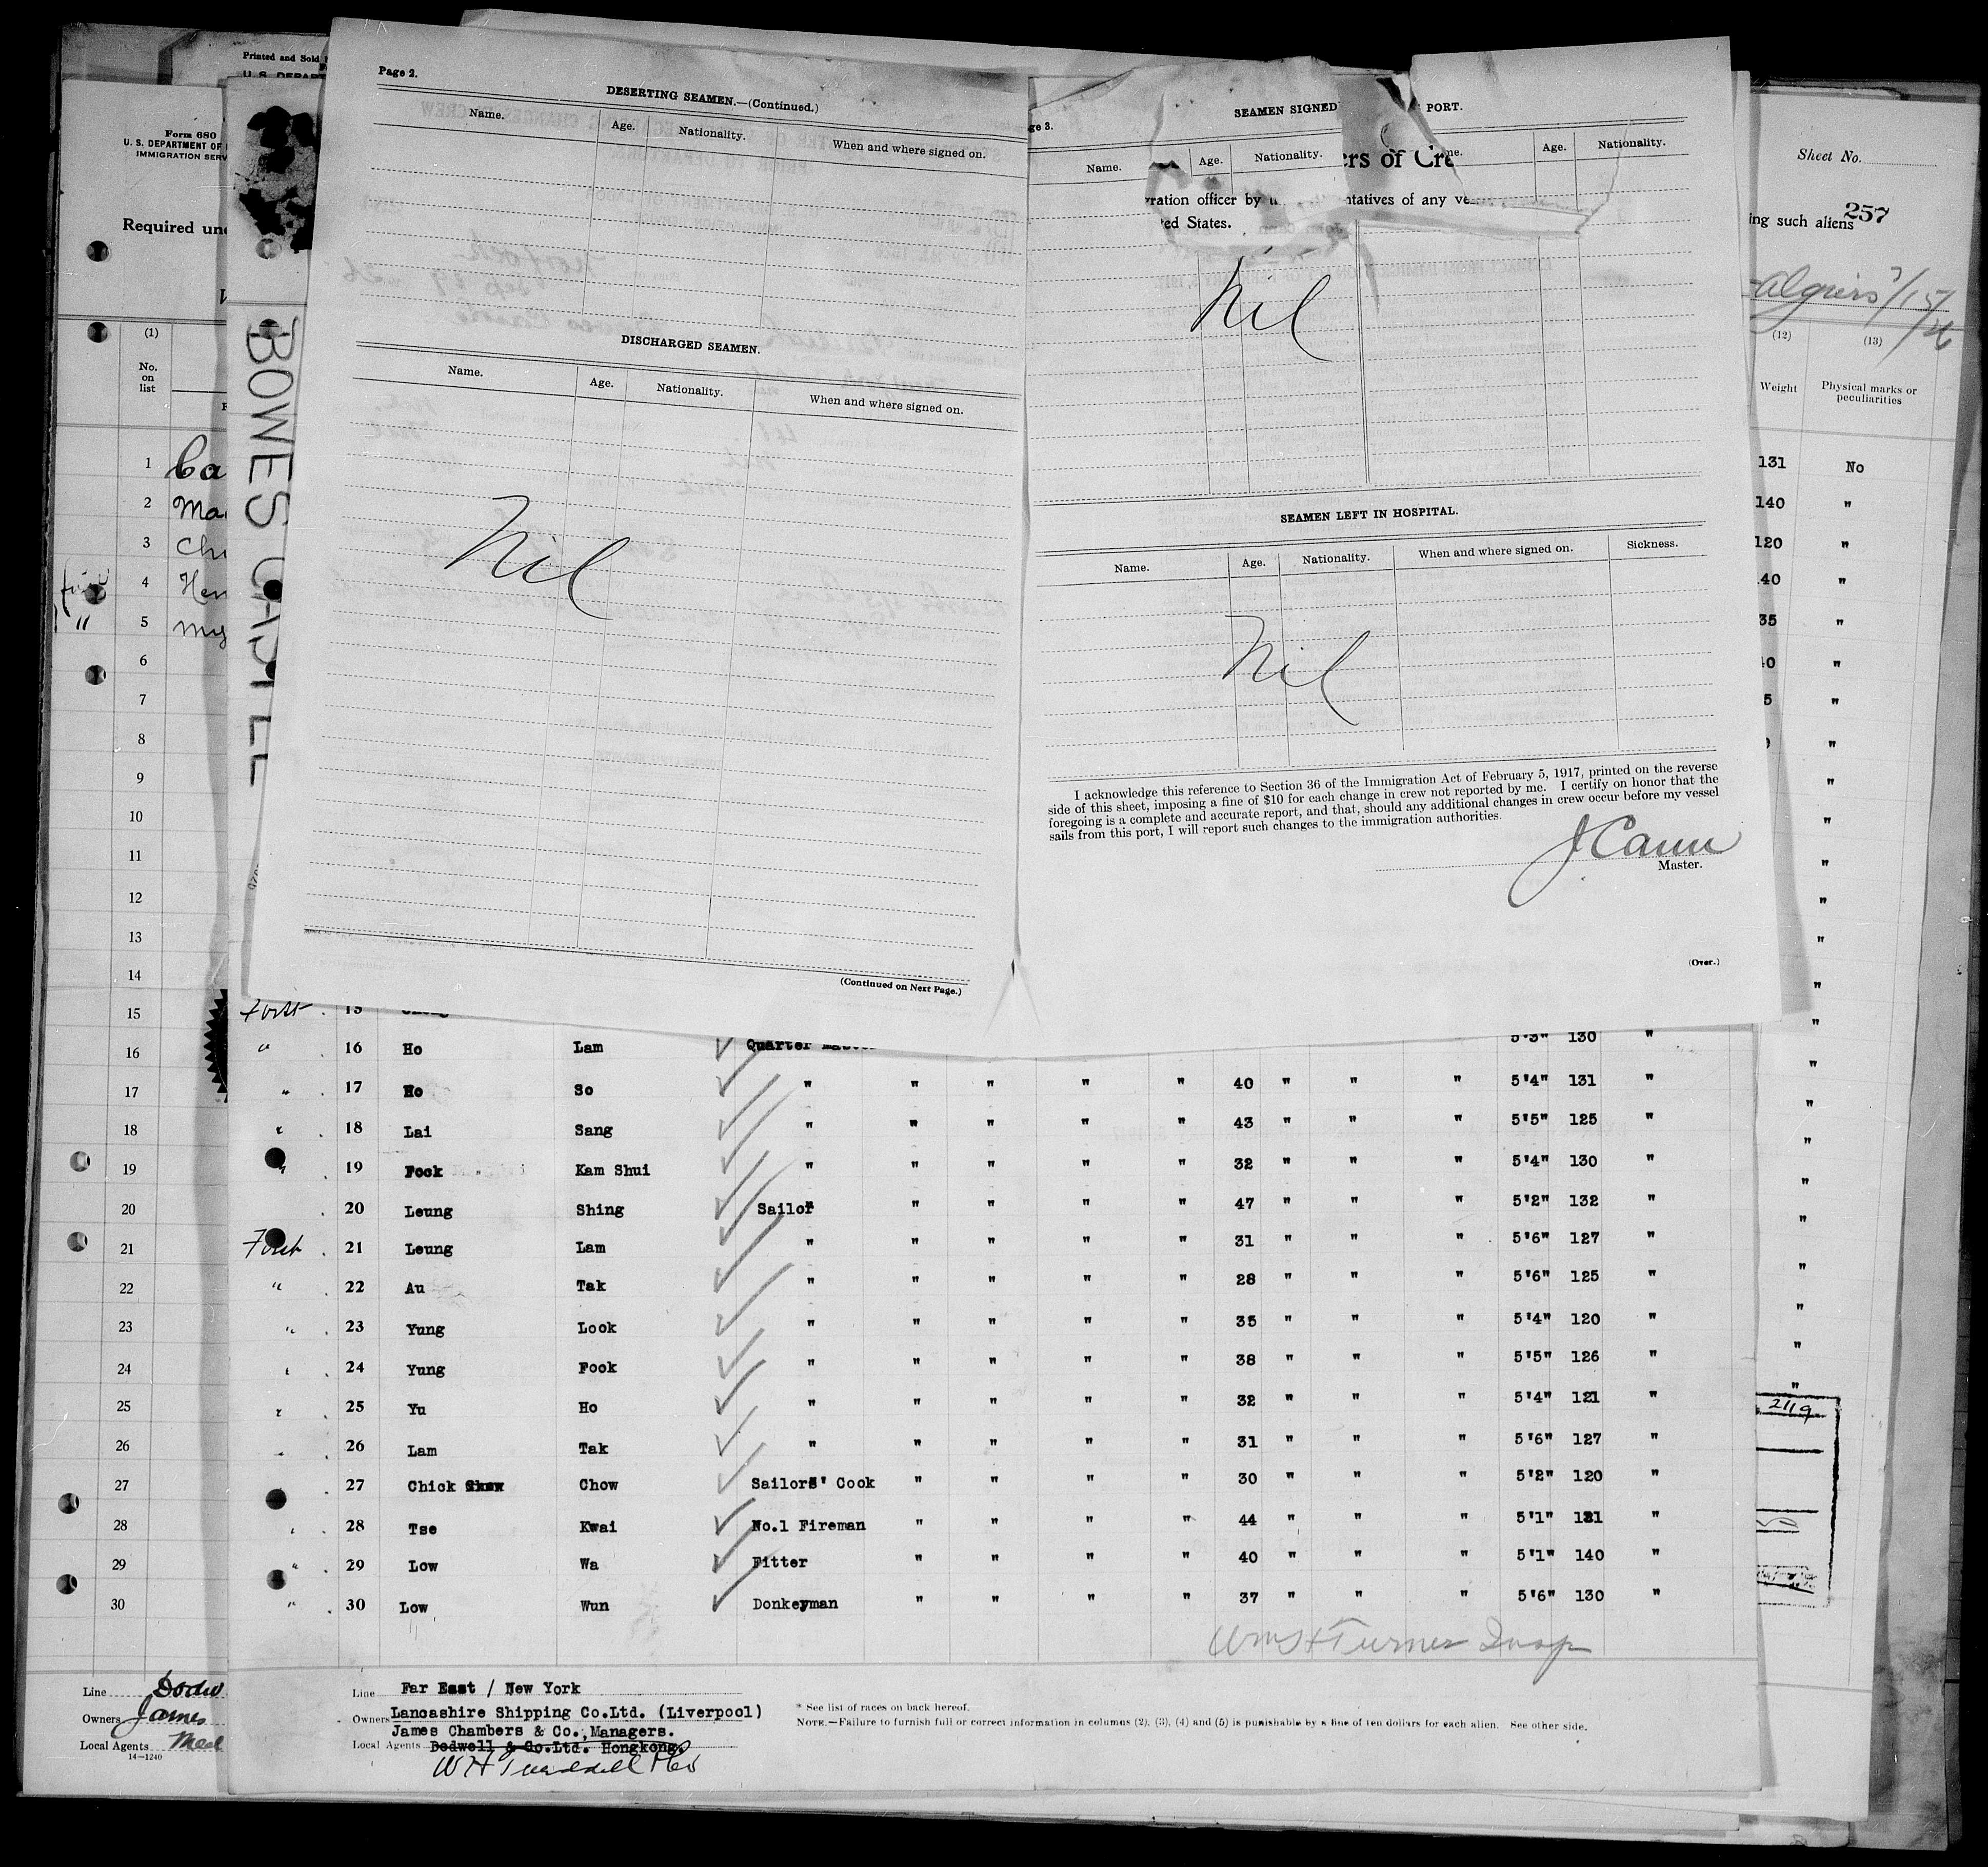 Page 2.
DESERTING SEAMEN.—(Continued.)
Name. Age. Nationality. When and where signed on.
DISCHARGED SEAMEN.
Name. Age. Nationality. When and where signed on.
Nil
(Continued on Next Page.)
ge 3.
SEAMEN SIGNED PORT.
Name. Age. Nationality. me. Age. Nationality.
ers of Cre
ration officer by ntatives of any ve
ted States.
Nil
SEAMEN LEFT IN HOSPITAL.
Name. Age. Nationality. When and where signed on. Sickness.
Nil
I acknowledge this reference to Section 36 of the Immigration Act of February 5, 1917, printed on the reverse
side of this sheet, imposing a fine of $10 for each change in crew not reported by me. I certify on honor that the
foregoing is a complete and accurate report, and that, should any additional changes in crew occur before my vessel
sails from this port, I will report such changes to the immigration authorities.
J Cann
Master.
(Over.)
Printed and Sold
U. S. DEPAR
Form 680
U. S. DEPARTMENT OF
IMMIGRATION SERV
Required un
(1)
No.
on
list
1 Ca
2 Ma
3 Ch
4 Hen
5 my
6
7
8
9
10
11
12
13
14
15
16
17
18
19
20
21
22
23
24
25
26
27
28
29
30
Line Dodw
Owners James
Local Agents
14—1240
BOWES CASTLE
Sheet No.
257
ing such aliens
Algiers 7/15/26
(12) (13)
Weight Physical marks or
peculiarities
131 No
140 "
120 "
40 "
35 "
0 "
5 "
"
2119
15
" 16 Ho Lam Quarter 5'3" 130 "
" 17 Ho So " " " " " 40 " " " 5'4" 131 "
" 18 Lai Sang " " " " " 43 " " " 5'5" 125 "
" 19 Fook Kam Shui " " " " " 32 " " " 5'4" 130 "
20 Leung Shing Sailor " " " " 47 " " " 5'2" 132 "
21 Leung Lam " " " " " 31 " " " 5'6" 127 "
" 22 Au Tak " " " " " 28 " " " 5'6" 125 "
" 23 Yung Look " " " " " 35 " " " 5'4" 120 "
" 24 Yung Fook " " " " " 38 " " " 5'5" 126 "
" 25 Yu Ho " " " " " 32 " " " 5'4" 121 "
26 Lam Tak " " " " " 31 " " " 5'6" 127 "
27 Chick Chow Sailors' Cook " " " " 30 " " " 5'2" 120 "
28 Tse Kwai No.1 Fireman " " " " 44 " " " 5'1" 121 "
" 29 Low Wa Fitter " " " " 40 " " " 5'1" 140 "
" 30 Low Wun Donkeyman " " " " 37 " " " 5'6" 130 "
Wm H Turner Insp
Line Far East / New York
Owners Lancashire Shipping Co.Ltd. (Liverpool)
James Chambers & Co., Managers.
Local Agents Dodwell & Co.Ltd. Hongkong.
* See list of races on back hereof.
NOTE.—Failure to furnish full or correct information in columns (2), (3), (4) and (5) is punishable by a fine of ten dollars for each alien. See other side.